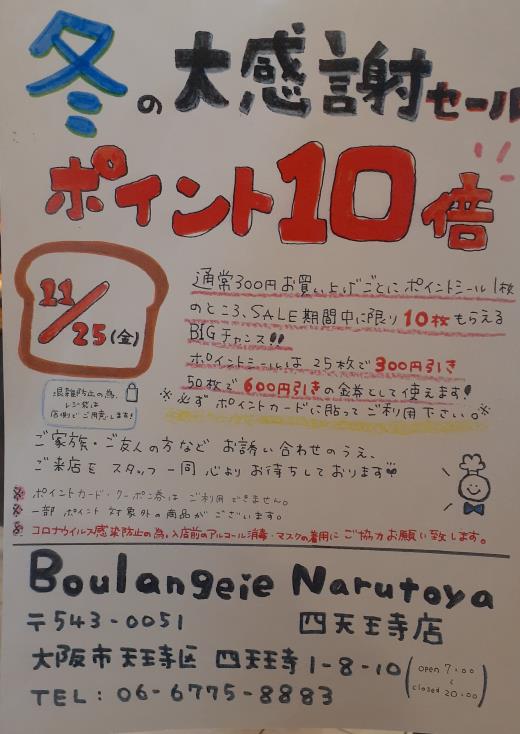 冬の大感謝セール
ポイント10倍
11/25(金)
通常300円お買い上げごとにポイントシール1枚
のところ、SALE期間中に限り10枚もらえる
BIGチャンス!!
ポイントシールは25枚で300円引き
50枚で600円引きの金券として使えます!
※必ずポイントカードに貼ってご利用下さい。※
混雑防止の為、
レジ袋は
店側でご用意します!
ご家族・ご友人の方など お誘い合わせのうえ、
ご来店を スタッフ一同 心よりお待ちしております
※ ポイントカード・クーポン券は ご利用できません。
※ 一部 ポイント対象外の商品がございます。
※ コロナウイルス感染防止の為、入店前のアルコール消毒・マスクの着用に ご協力お願い致します。
Boulangeie Narutoya
〒543-0051 四天王寺店
大阪市天王寺区 四天王寺1-8-10 (open 7:00 〜 closed 20:00)
TEL: 06-6775-8883